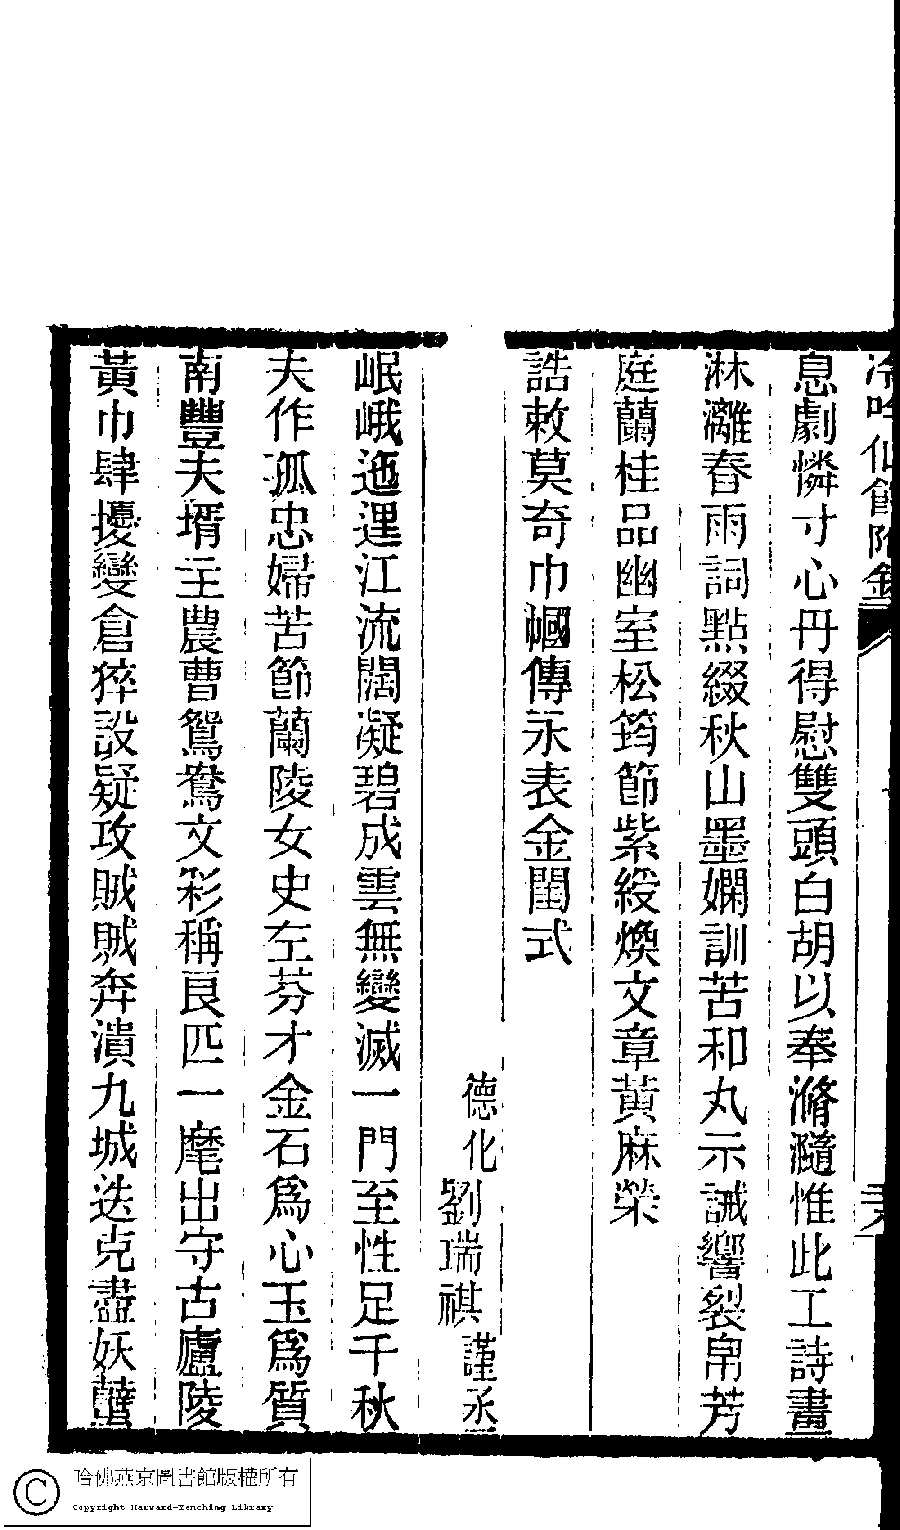 冷吟仙館附錄
息劇憐寸心丹得慰雙頭白胡以奉滫瀡惟此工詩畫
淋漓春雨詞點綴秋山墨嫻訓苦和丸示誡響裂帛芳
庭蘭桂品幽室松筠節紫綬煥文章黃麻榮
誥敕莫奇巾幗傳永表金閨式
德化劉瑞祺謹丞
岷峨迤逕江流闊凝碧成雲無變滅一門至性足千秋
夫作孤忠婦苦節蘭陵女史左芬才金石爲心玉爲質
南豐夫壻主農曹鴛鴦文彩稱良匹一麾出守古廬陵
黃巾肆擾變倉猝設疑攻賊賊奔潰九城迭克盡妖蘖
哈佛燕京圖書館版權所有
Copyright Harvard-Yenching Library